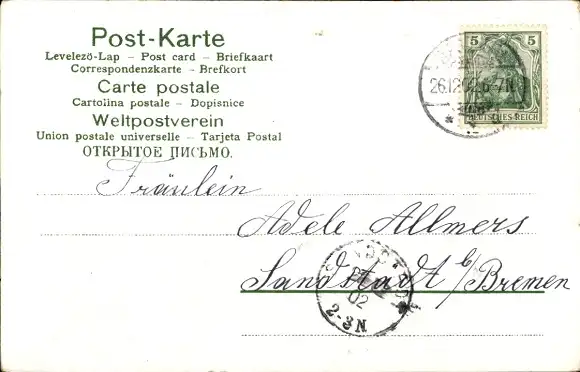 Post-Karte
Levelezö-Lap – Post card – Briefkaart
Correspondenzkarte – Brefkort
Carte postale
Cartolina postale – Dopisnice
Weltpostverein
Union postale universelle – Tarjeta Postal
ОТКРЫТОЕ ПИСЬМО.
5 5
DEUTSCHES REICH
26.12.02 6-7N
Fräulein
Adele Allmers
Sandstadt b/Bremen
02
2-3N